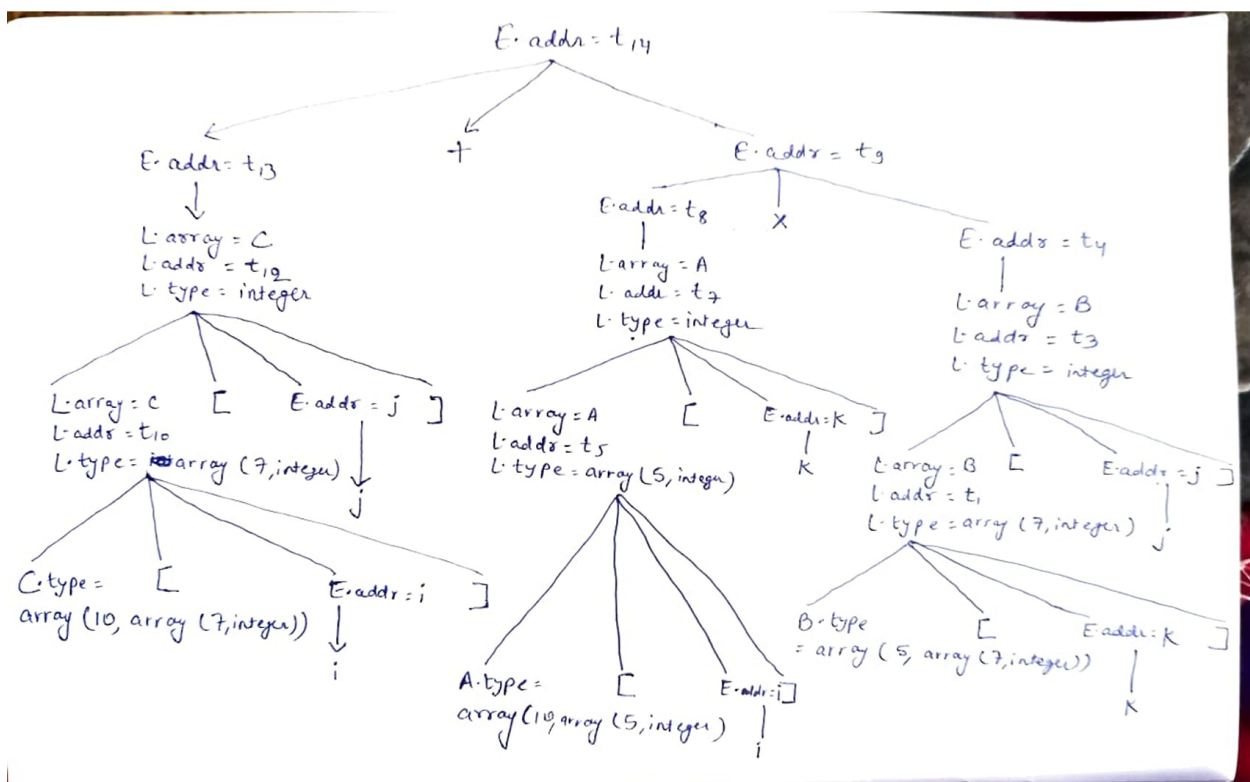 E.addr = t14
E.addr = t13
+
E.addr = t9
L.array = C
L.addr = t12
L.type = integer
E.addr = t8
X
E.addr = t4
L.array = A
L.addr = t7
L.type = integer
L.array = B
L.addr = t3
L.type = integer
L.array = C
L.addr = t10
L.type = array (7, integer)
[
E.addr = j
]
j
L.array = A
L.addr = t5
L.type = array (5, integer)
[
E.addr = K
]
K
L.array = B
L.addr = t1
L.type = array (7, integer)
[
E.addr = j
]
j
C.type =
array (10, array (7, integer))
[
E.addr = i
]
i
A.type =
array (10, array (5, integer)
[
E.addr = i
]
i
B.type
= array (5, array (7, integer))
[
E.addr = K
]
K